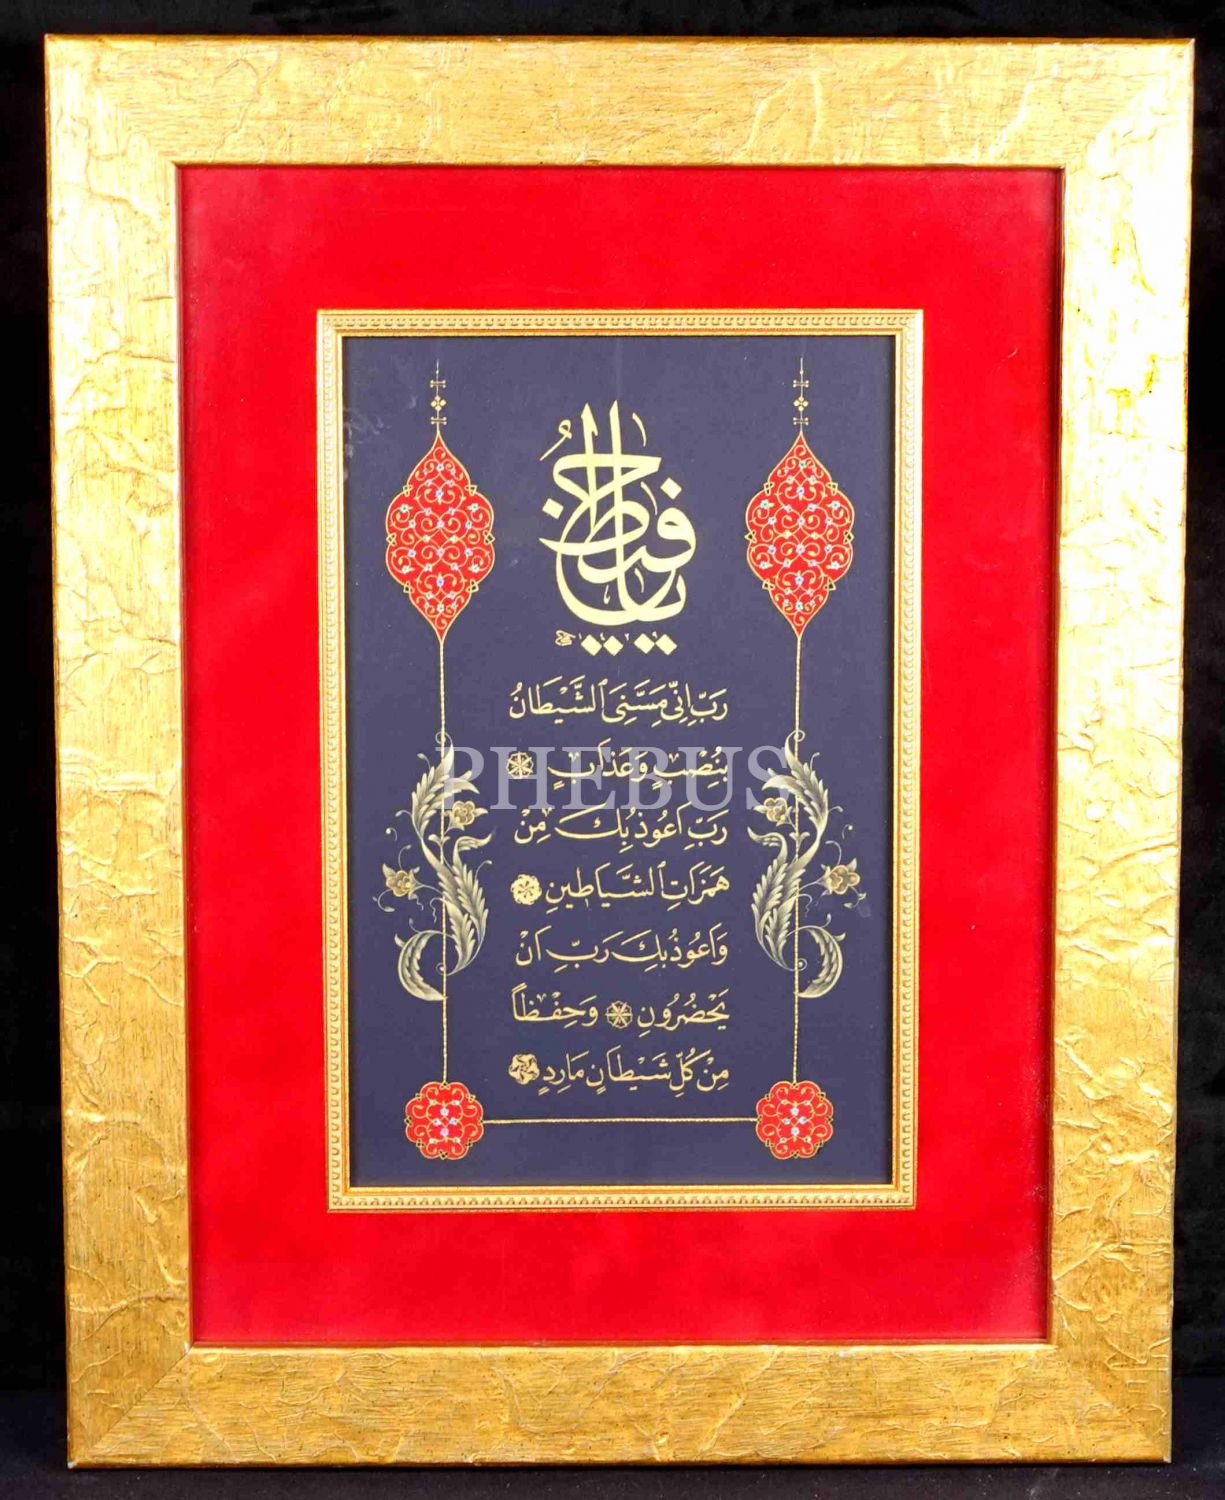 يا فتاح
رَبِّ اِنِّى مَسَّنِىَ ٱلشَّيْطَانُ
بِنُصْبٍ وَعَذَابٍ
PHEBUS
رَبِّ اَعُوذُ بِكَ مِنْ
هَمَزَاتِ ٱلشَّيَاطِينِ
وَاَعُوذُ بِكَ رَبِّ اَنْ
يَحْضُرُونِ وَحِفْظاً
مِنْ كُلِّ شَيْطَانٍ مَارِدٍ